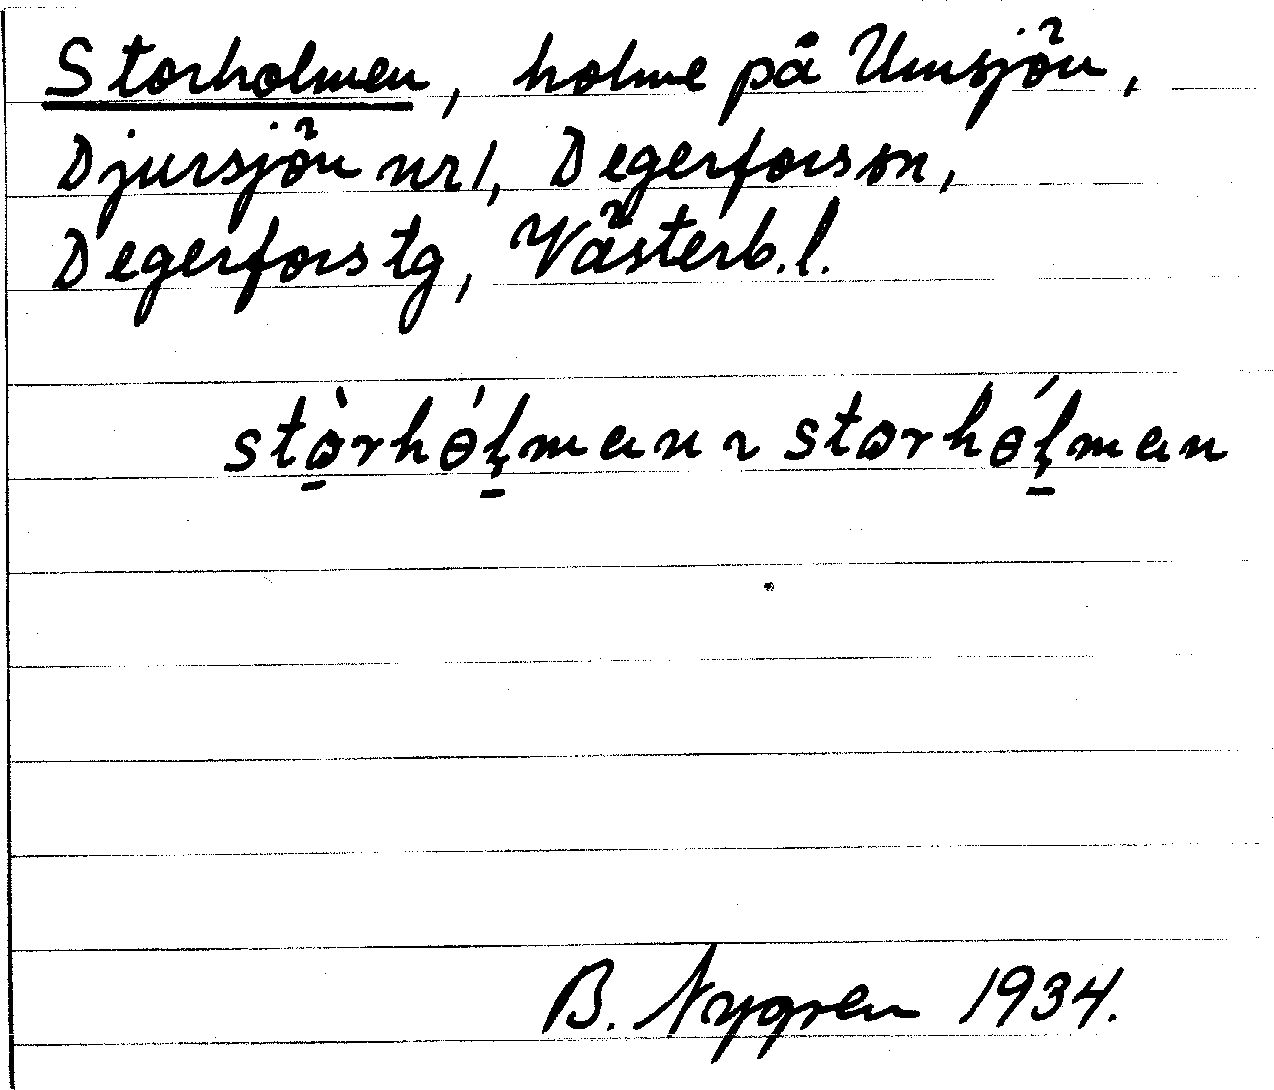 Storholmen, holme på Umsjön,
Djursjön nr 1, Degerfors sn,
Degerfors tg, Västerb. l.
stɷ̀rhɵ́ḷman ~ stɷrhɵ́ḷman
B. Nygren 1934.